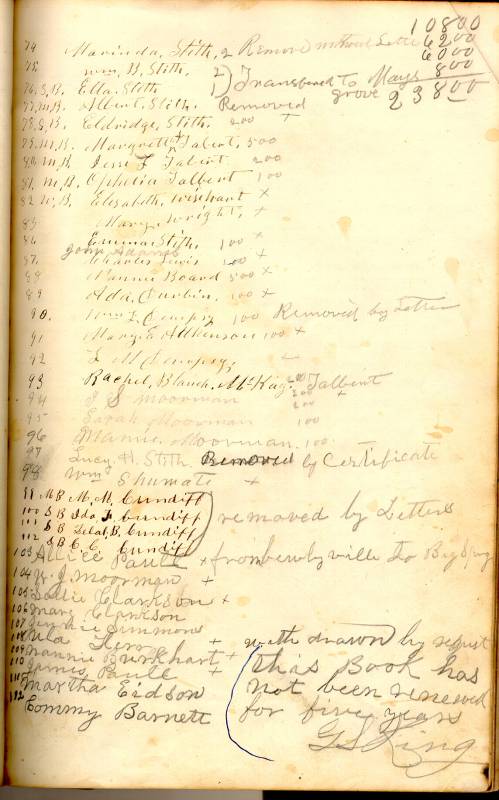 10800
6200
6000
800
23800
74 Marinda, Stith, 2 Remove without Lette
75 Wm, B, Stith, 2
76, S, B, Ella, Stith 1 Transfered to Mays grove
77, M, B, Albert, Stith, Removed
78, S, B, Eldridge, Stith, 200 +
79, M, B, Margrett, Talbert, 500
80, M, B Jessi F Talbert 200
81, M, B, Ophelia Talbert 100
82 Elizabeth, Wisehart x
83 Mary, Wright, +
86 Emma Stith, 100 x
John Adams
87, Charles Lewis 100 x
88 Nannie Board 500 x
89 Ada, Durbin, 100 x
90. Wm L Dempsy 100 Removed by Letter
91 Mary E Atkinson 100 +
92 L M Dempsy,
93 Rachel, Blanch, McKay Talbert
94 J S Moorman 200 +
95 Sarah Moorman 100
96 Mamie Moorman, 100
97 Lucy, H, Stith, Removed by Certificate
98 Wm Shumate +
99 M B M. M. Cundiff
100 S B Ida F. Cundiff removed by Letters
111 S B Lelah, B, Cundiff
112 S B C. C. Cundiff
103 Allice Paule x from
104 J moorman +
105 Sallie Clarkson x
106 Mary Clarkson
107 Simmons
108 + with drawn by
109 Nannie Burkhart +
110 James Paule +
Martha Eidson
112 Tommy Barnett
This Book has
not been renewed
for five years
G S King